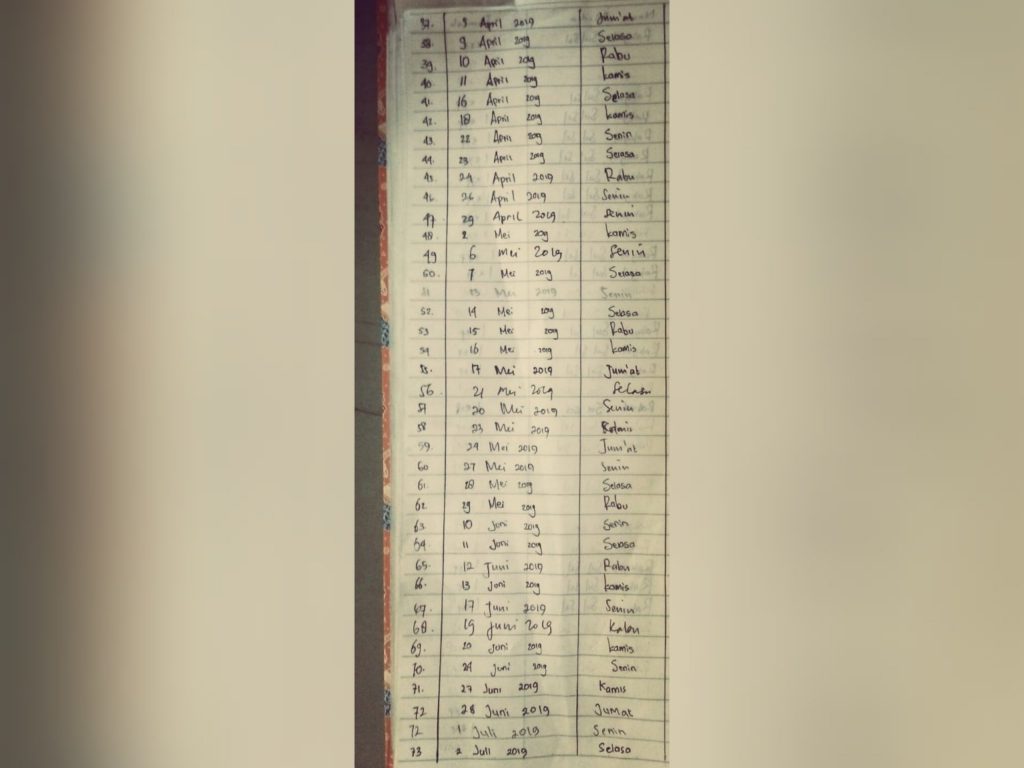 37. 5 April 2019 Jum'at
38. 9 April 2019 Selasa
39. 10 April 2019 Rabu
40. 11 April 2019 kamis
41. 16 April 2019 Selasa
42. 18 April 2019 kamis
43. 22 April 2019 Senin
44. 23 April 2019 Selasa
45. 24 April 2019 Rabu
46. 26 April 2019 Senin
47. 29 April 2019 Senin
48. 2 Mei 2019 kamis
49 6 Mei 2019 Senin
60. 7 Mei 2019 Selasa
51 13 Mei 2019 Senin
52. 14 Mei 2019 Selasa
53 15 Mei 2019 Rabu
54 16 Mei 2019 kamis
55. 17 Mei 2019 Jum'at
56 21 Mei 2019 Selasa
57 20 Mei 2019 Senin
58 23 Mei 2019 Kamis
59. 24 Mei 2019 Jum'at
60 27 Mei 2019 Senin
61. 28 Mei 2019 Selasa
62. 29 Mei 2019 Rabu
63. 10 Juni 2019 Senin
64. 11 Juni 2019 Selasa
65. 12 Juni 2019 Rabu
66. 13 Juni 2019 kamis
67. 17 Juni 2019 Senin
68. 19 Juni 2019
69. 20 Juni 2019 kamis
70. 24 Juni 2019 Senin
71. 27 Juni 2019 Kamis
72 28 Juni 2019 Jumat
72 1 Juli 2019 Senin
73 2 Juli 2019 Selasa